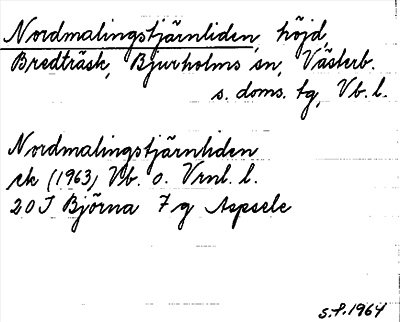 Nordmalingstjärnliden, höjd,
Bredträsk, Bjurholms sn, Västerb.
s. doms. tg, Vb. l.
Nordmalingstjärnliden
ek (1963) Vb. o. Vrnl. l.
20 J Björna 7 g Aspsele
S.P. 1964